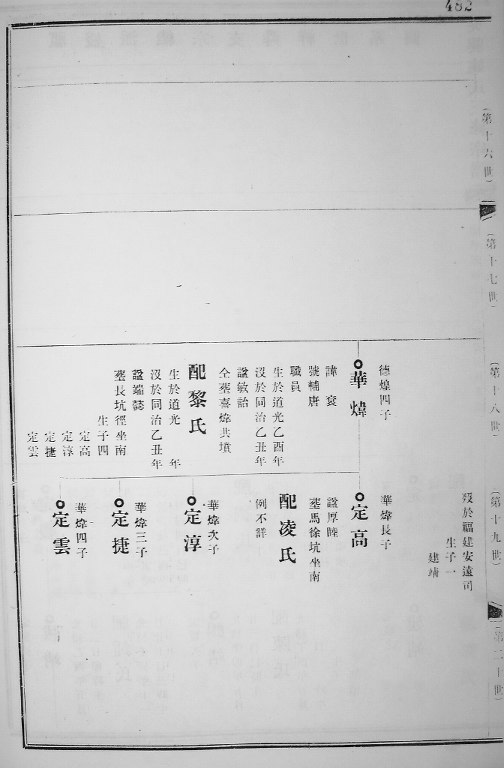 482
(第十六世)
(第十七世)
(第十八世)
(第十九世)
(第二十世)
德煌四子
華煒
諱袞
號輔唐
職員
生於道光乙酉年
沒於同治乙丑年
諡敏詒
仝塟喜煒共墳
配黎氏
生於道光 年
沒於同治乙丑年
諡端懿
塟長坑徑坐南
生子四
定高
定淳
定捷
定雲
歿於福建安遠司
生子一
建靖
華煒長子
定高
諡厚睦
塟馬徐坑坐南
配凌氏
例不詳
華煒次子
定淳
華煒三子
定捷
華煒四子
定雲